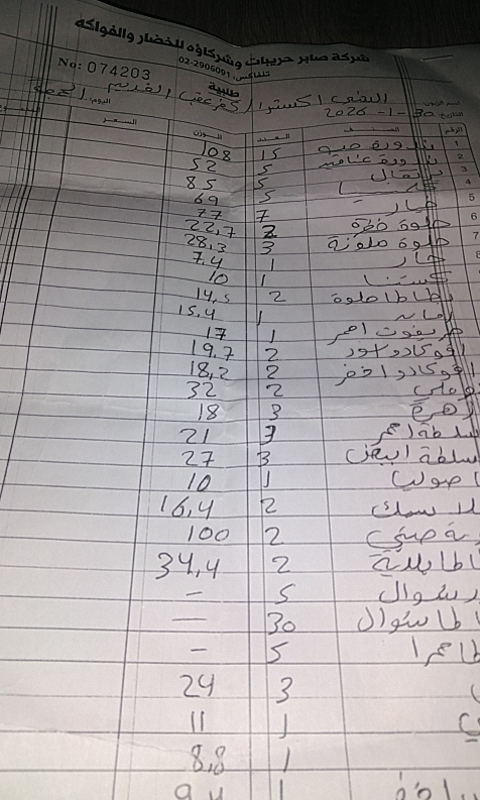 شركة صابر حريبات وشركاؤه للخضار والفواكه
تلفاكس: 02-2906091
No: 074203
طلبية
اكسترا كفر عقب القديم
اليوم: الجمعة
التاريخ: 30-1-2026
الرقم الصنف العدد الوزن السعر
1 بندورة حبه 15 108
2 بندورة عناقيد 5 52
3 برتقال 5 85
4 5 69
5 خيار 7 77
6 حلوة خضرة 2 22,7
7 حلوة ملونة 3 28,3
8 حار 1 7,4
كستنا 1 10
بطاطا حلوة 2 14,5
1 15,4
احمر 1 17
افوكادو اسود 2 19,7
افوكادو اخضر 2 18,2
2 32
زهرة 3 18
سلطة احمر 3 21
سلطة ابيض 3 27
اصوليا 1 10
سمك 2 16,4
صيني 2 100
طا بلدية 2 34,4
شوال 5 —
طا شوال 30 —
طا حمرا 5 —
3 24
1 11
1 8,8
1